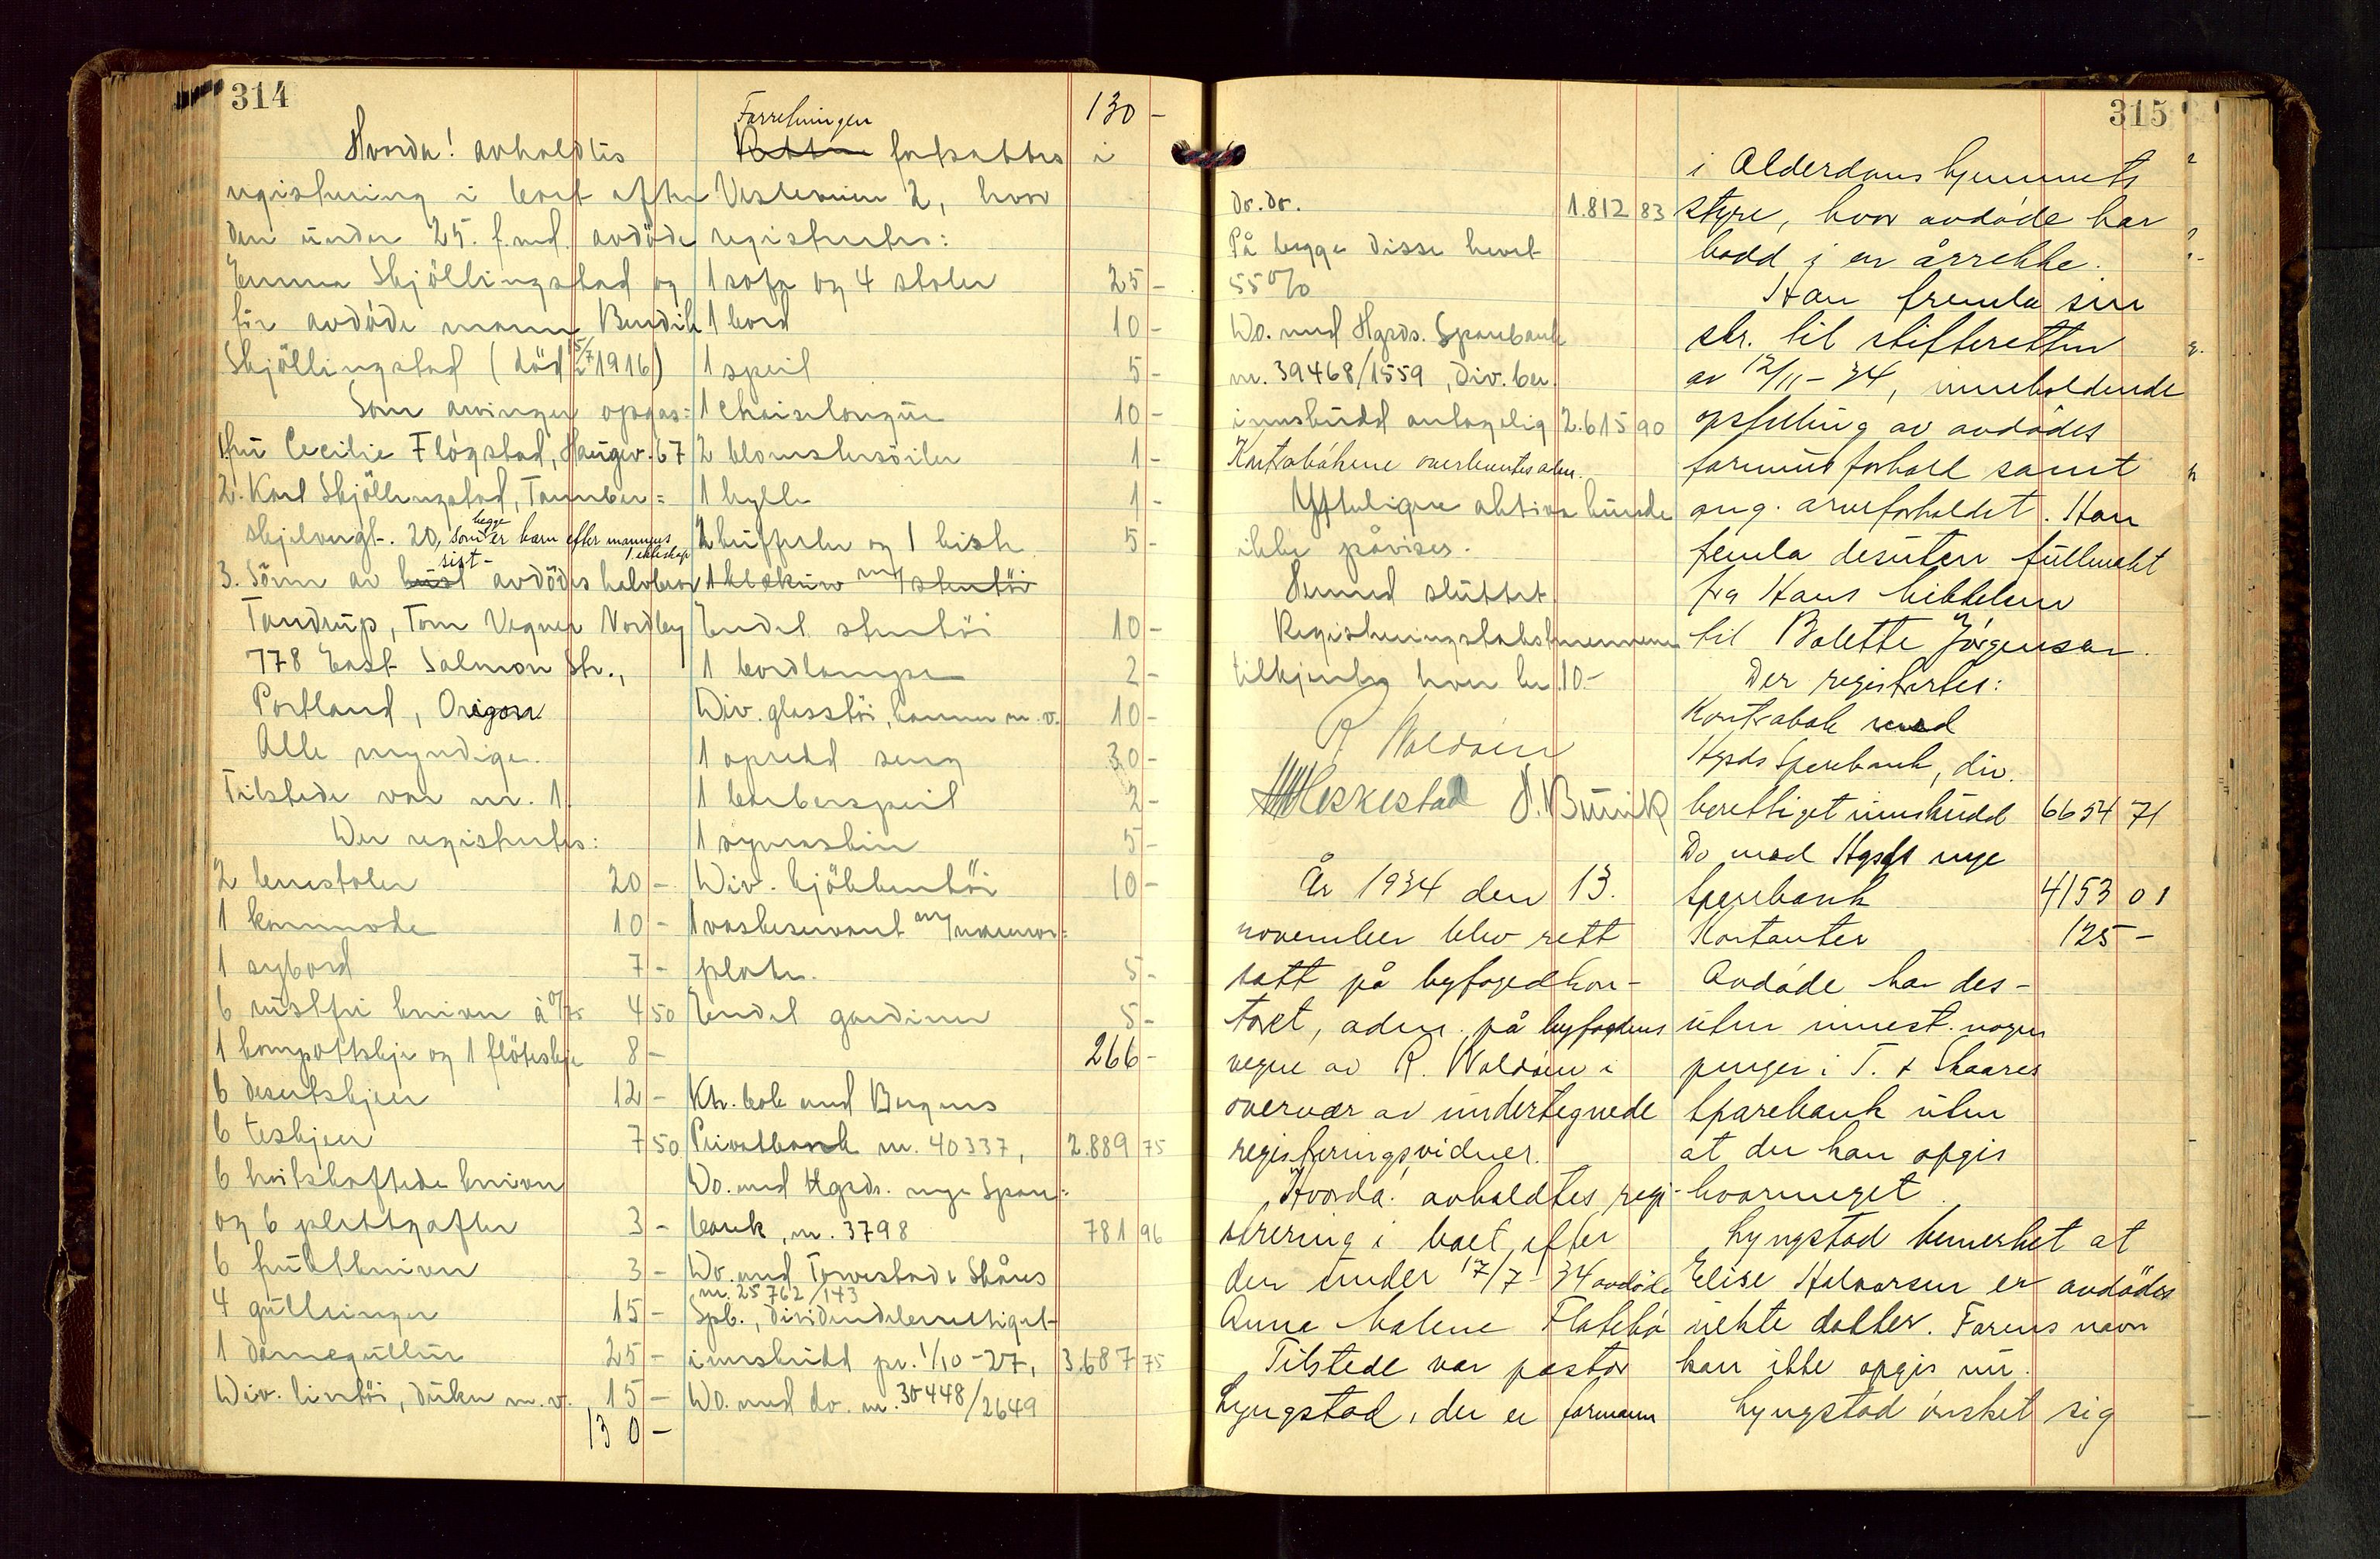 314
Hvorda! avholdtes
registrering i boet efter
den under 25. f.md. avdöde
Emma Skjöllingstad og
før avdøde mann Bendik
Skjöllingstad (död 5/7 1916)
Som arvinger opgas:
1. fru Cecilie Fløgstad, Haugev. 67
2. Karl Skjöllingstad, Tannber=
skjelvngt. 20, som begge er barn efter mannens
1. ekteskap
3. Sönn av sist avdødes halvbror
Tandrup, Tom Vegner Nordby
778 East Salmon Str.,
Portland, Oregon
Alle myndige.
Tilstede var nr. 1.
Der registrertes:
2 lenestoler 20 -
1 kommode 10 -
1 sybord 7 -
6 rustfri kniver à 0/75 4 50
1 kompottskje og 1 flöteskje 8 -
6 desertskjeer 12 -
6 teskjeer 7 50
6 hvitskaftede kniver
og 6 plettgafler 3 -
6 fruktkniver 3 -
4 gullringer 15 -
1 damegullur 25 -
Div. lintöi, duker m.v. 15 -
130 -
130 -
Forretningen
Retten forsattes i
Vesterveien 2, hvor
registrertes:
1 sofa og 4 stoler 25 -
1 bord 10 -
1 speil 5 -
1 chaiselongue 10 -
2 blomstersöiler 1 -
1 hylle 1 -
2 bufferter og 1 kiste 5 -
1 blekurv m/stentöi
Endel stentöi 10 -
1 bordlampe 2 -
Div. glasstöi, kanner m.v. 10 -
1 opredd seng 30 -
1 barberspeil 2 -
1 symaskin 5 -
Div. kjökkentöi 10 -
1 vaskeservant m/marmor=
plate. 5 -
Endel gardiner 5 -
266 -
Ktr. bok med Bergens
Privatbank nr. 40337, 2.889 75
Do. med Hgsds. nye Spare=
bank, nr. 3798 781 96
Do. med Torvestad & Skåres
nr. 25762/143
Spb., dividendeberettiget
innskudd pr. 1/10-27, 3.687 75
Do. med do. nr. 30448/2649
315
do. do. 1.812 83
På begge disse hevet
55%
Do. med Hgsds. Sparebank
nr. 39468/1559, div. ber.
innskudd antagelig 2.615 90
Kontrabøkene overleveres aken.
Ytterligere aktiva kunde
ikke påvises.
Dermed sluttet
Registreringstakstmennene
tilkjentes hver kr. 10.-
R Waldøen
Heskestad O. Burvik
År 1934 den 13.
november blev rett
satt på byfogedkon-
toret, adm. på byfogdens
vegne av R. Waldøen i
overvær av undertegnede
registreringsvidner.
Hvorda! avholdtes regi-
strering i boet efter
den under 17/7-34 avdøde
Anna Malene Flatebø
Tilstede var pastor
Lyngstad, der er formann
i Alderdomshjemmets
styre, hvor avdøde har
bodd i en årrekke.
Han fremla sin
skr. til skifteretten
av 12/11-34, inneholdende
opstilling av avdødes
formuesforhold samt
ang. arveforholdet. Han
fremla desuten fullmakt
fra Hans Mikkelsen
til Bolette Jörgensen.
Der registrertes:
Kontrabok med
Hgsds Sparebank, div.
berettiget innskudd 6654 71
Do med Hgsds nye
Sparebank 4153 01
Kontanter 125 -
Avdøde har des-
uten innest. nogen
penger i T. & Skaares
Sparebank uten
at der kan opgis
hvormeget.
Lyngstad bemerket at
Elise Halvorsen er avdødes
uekte datter. Farens navn
kan ikke opgis nu.
Lyngstad ønsket sig